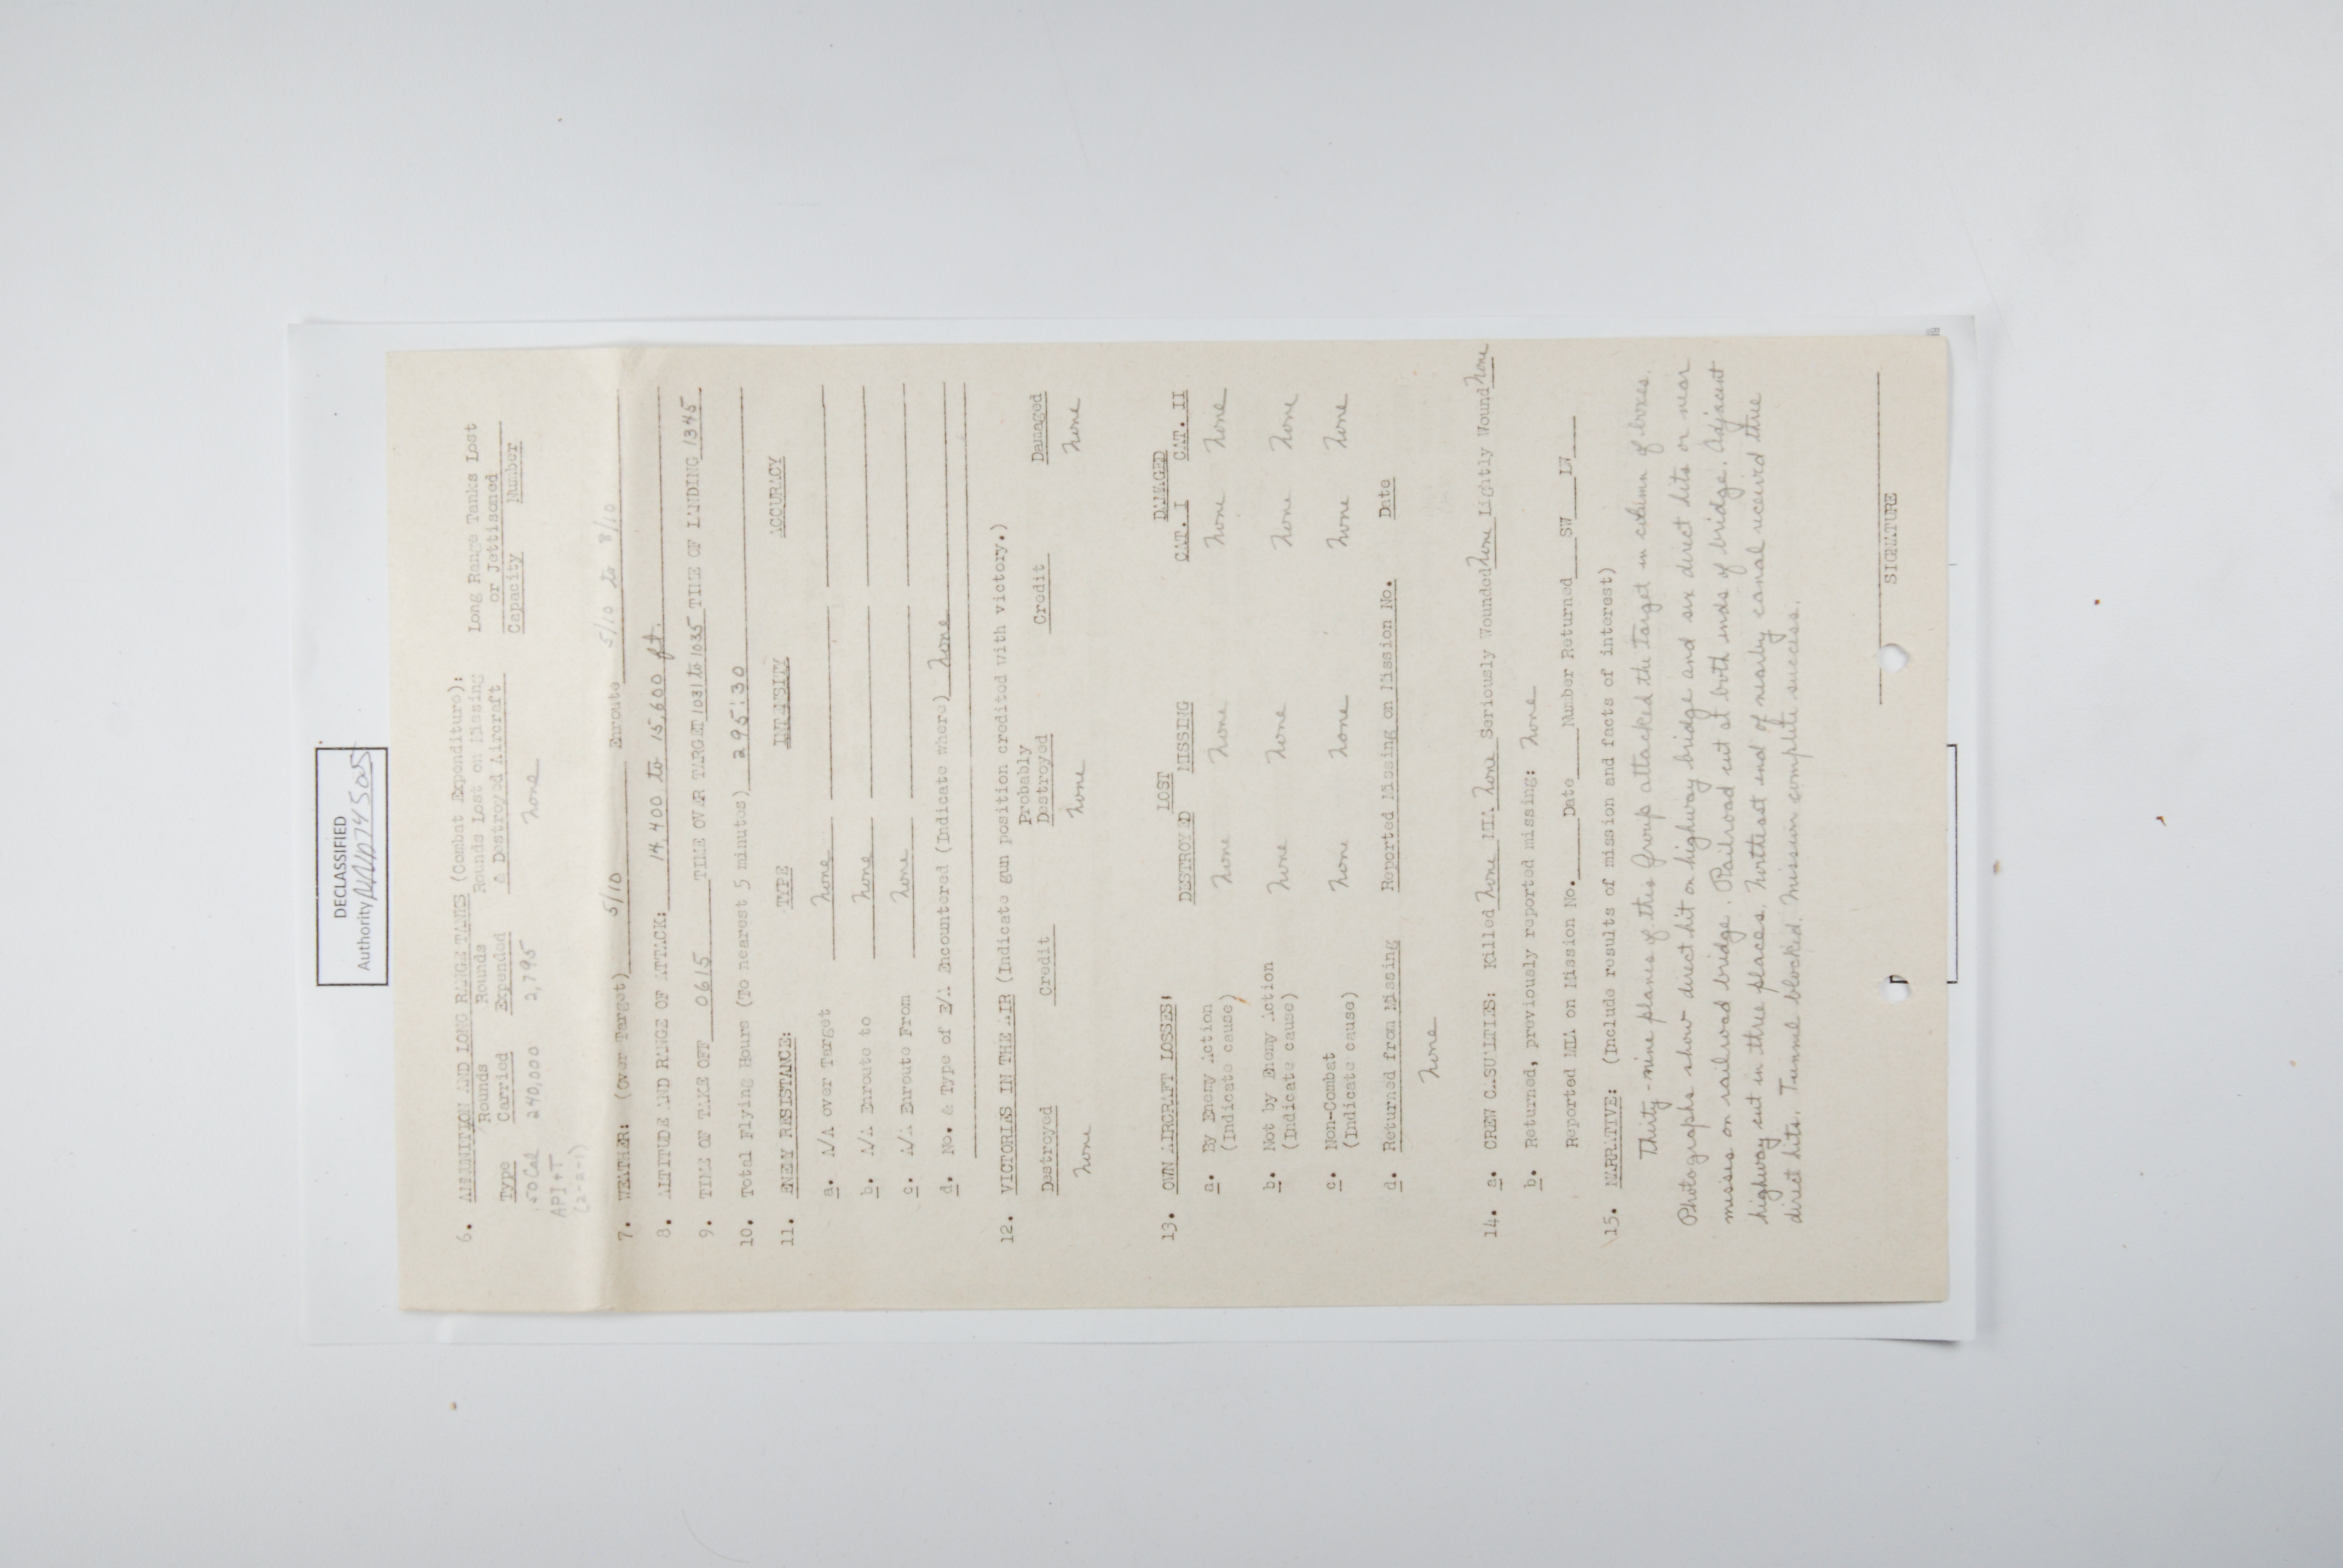 DECLASSIFIED
Authority NND745005
6. AMMUNITION AND LONG RANGE TANKS (Combat Expenditure):
Rounds Rounds Rounds Lost on Missing Long Range Tanks Lost
Type Carried Expended & Destroyed Aircraft or Jettisoned
Capacity Number
.50 Cal 240,000 2,795 None
API+T
(2-2-1)
7. WEATHER: (Over Target) 5/10 Enroute 5/10 to 8/10
8. ALTITUDE AND RANGE OF ATTACK: 14,400 to 15,600 ft.
9. TIME OF TAKE OFF 0615 TIME OVER TARGET 1031 to 1035 TIME OF LANDING 1345
10. Total Flying Hours (To nearest 5 minutes) 295:30
11. ENEMY RESISTANCE: TYPE INTENSITY ACCURACY
a. A/A over Target None
b. A/A Enroute to None
c. A/A Enroute From None
d. No. & Type of E/A Encountered (Indicate where) None
12. VICTORIES IN THE AIR (Indicate gun position credited with victory.)
Probably
Destroyed Credit Destroyed Credit Damaged
None None None
13. OWN AIRCRAFT LOSSES: LOST DAMAGED
DESTROYED MISSING CAT. I CAT. II
a. By Enemy Action None None None None
(Indicate cause)
b. Not by Enemy Action None None None None
(Indicate cause)
c. Non-Combat None None None None
(Indicate cause)
d. Returned from Missing Reported Missing on Mission No. Date
None
14. a. CREW CASUALTIES: Killed None MIA None Seriously Wounded None Lightly Wound None
b. Returned, previously reported missing: None
Reported MIA on Mission No.____Date____Number Returned____SW____LW____
15. NARRATIVE: (Include results of mission and facts of interest)
Thirty-nine planes of this Group attacked the target in column of boxes.
Photographs show direct hit on highway bridge and six direct hits or near
misses on railroad bridge. Railroad cut at both ends of bridge. Adjacent
highway cut in three places. Northest end of nearby canal received three
direct hits. Tunnel blocked. Mission complete success.
SIGNATURE